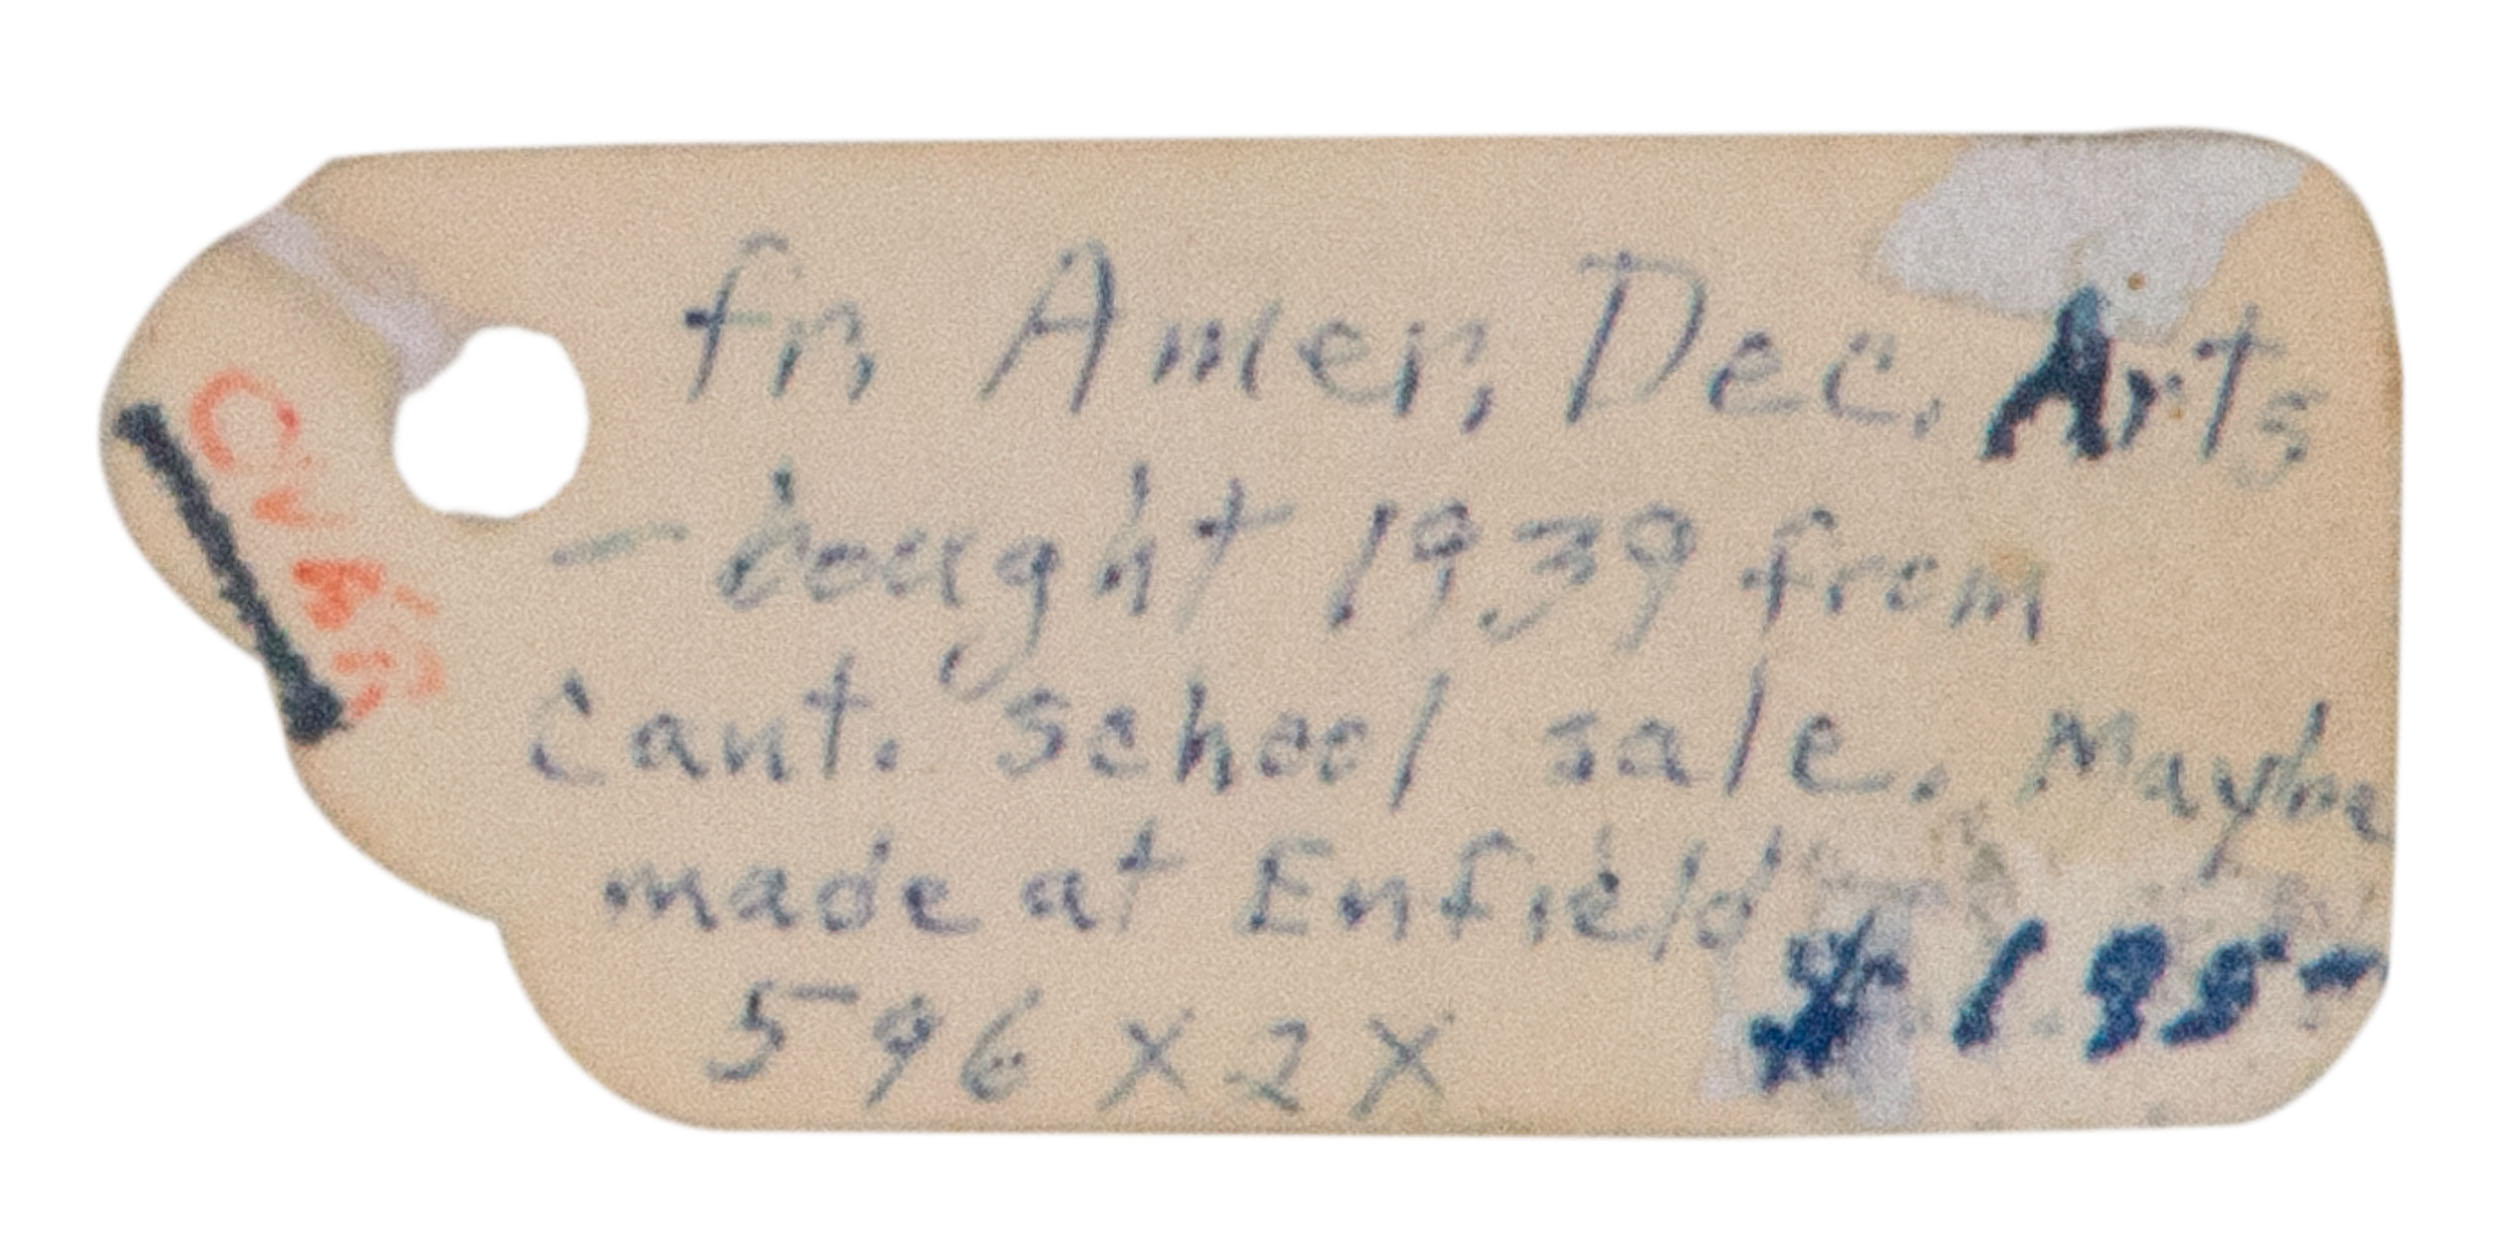 fr. Amer. Dec. Arts
- bought 1939 from
Cant. school sale. Maybe
made at Enfield
$ 195-
596 X 2 X